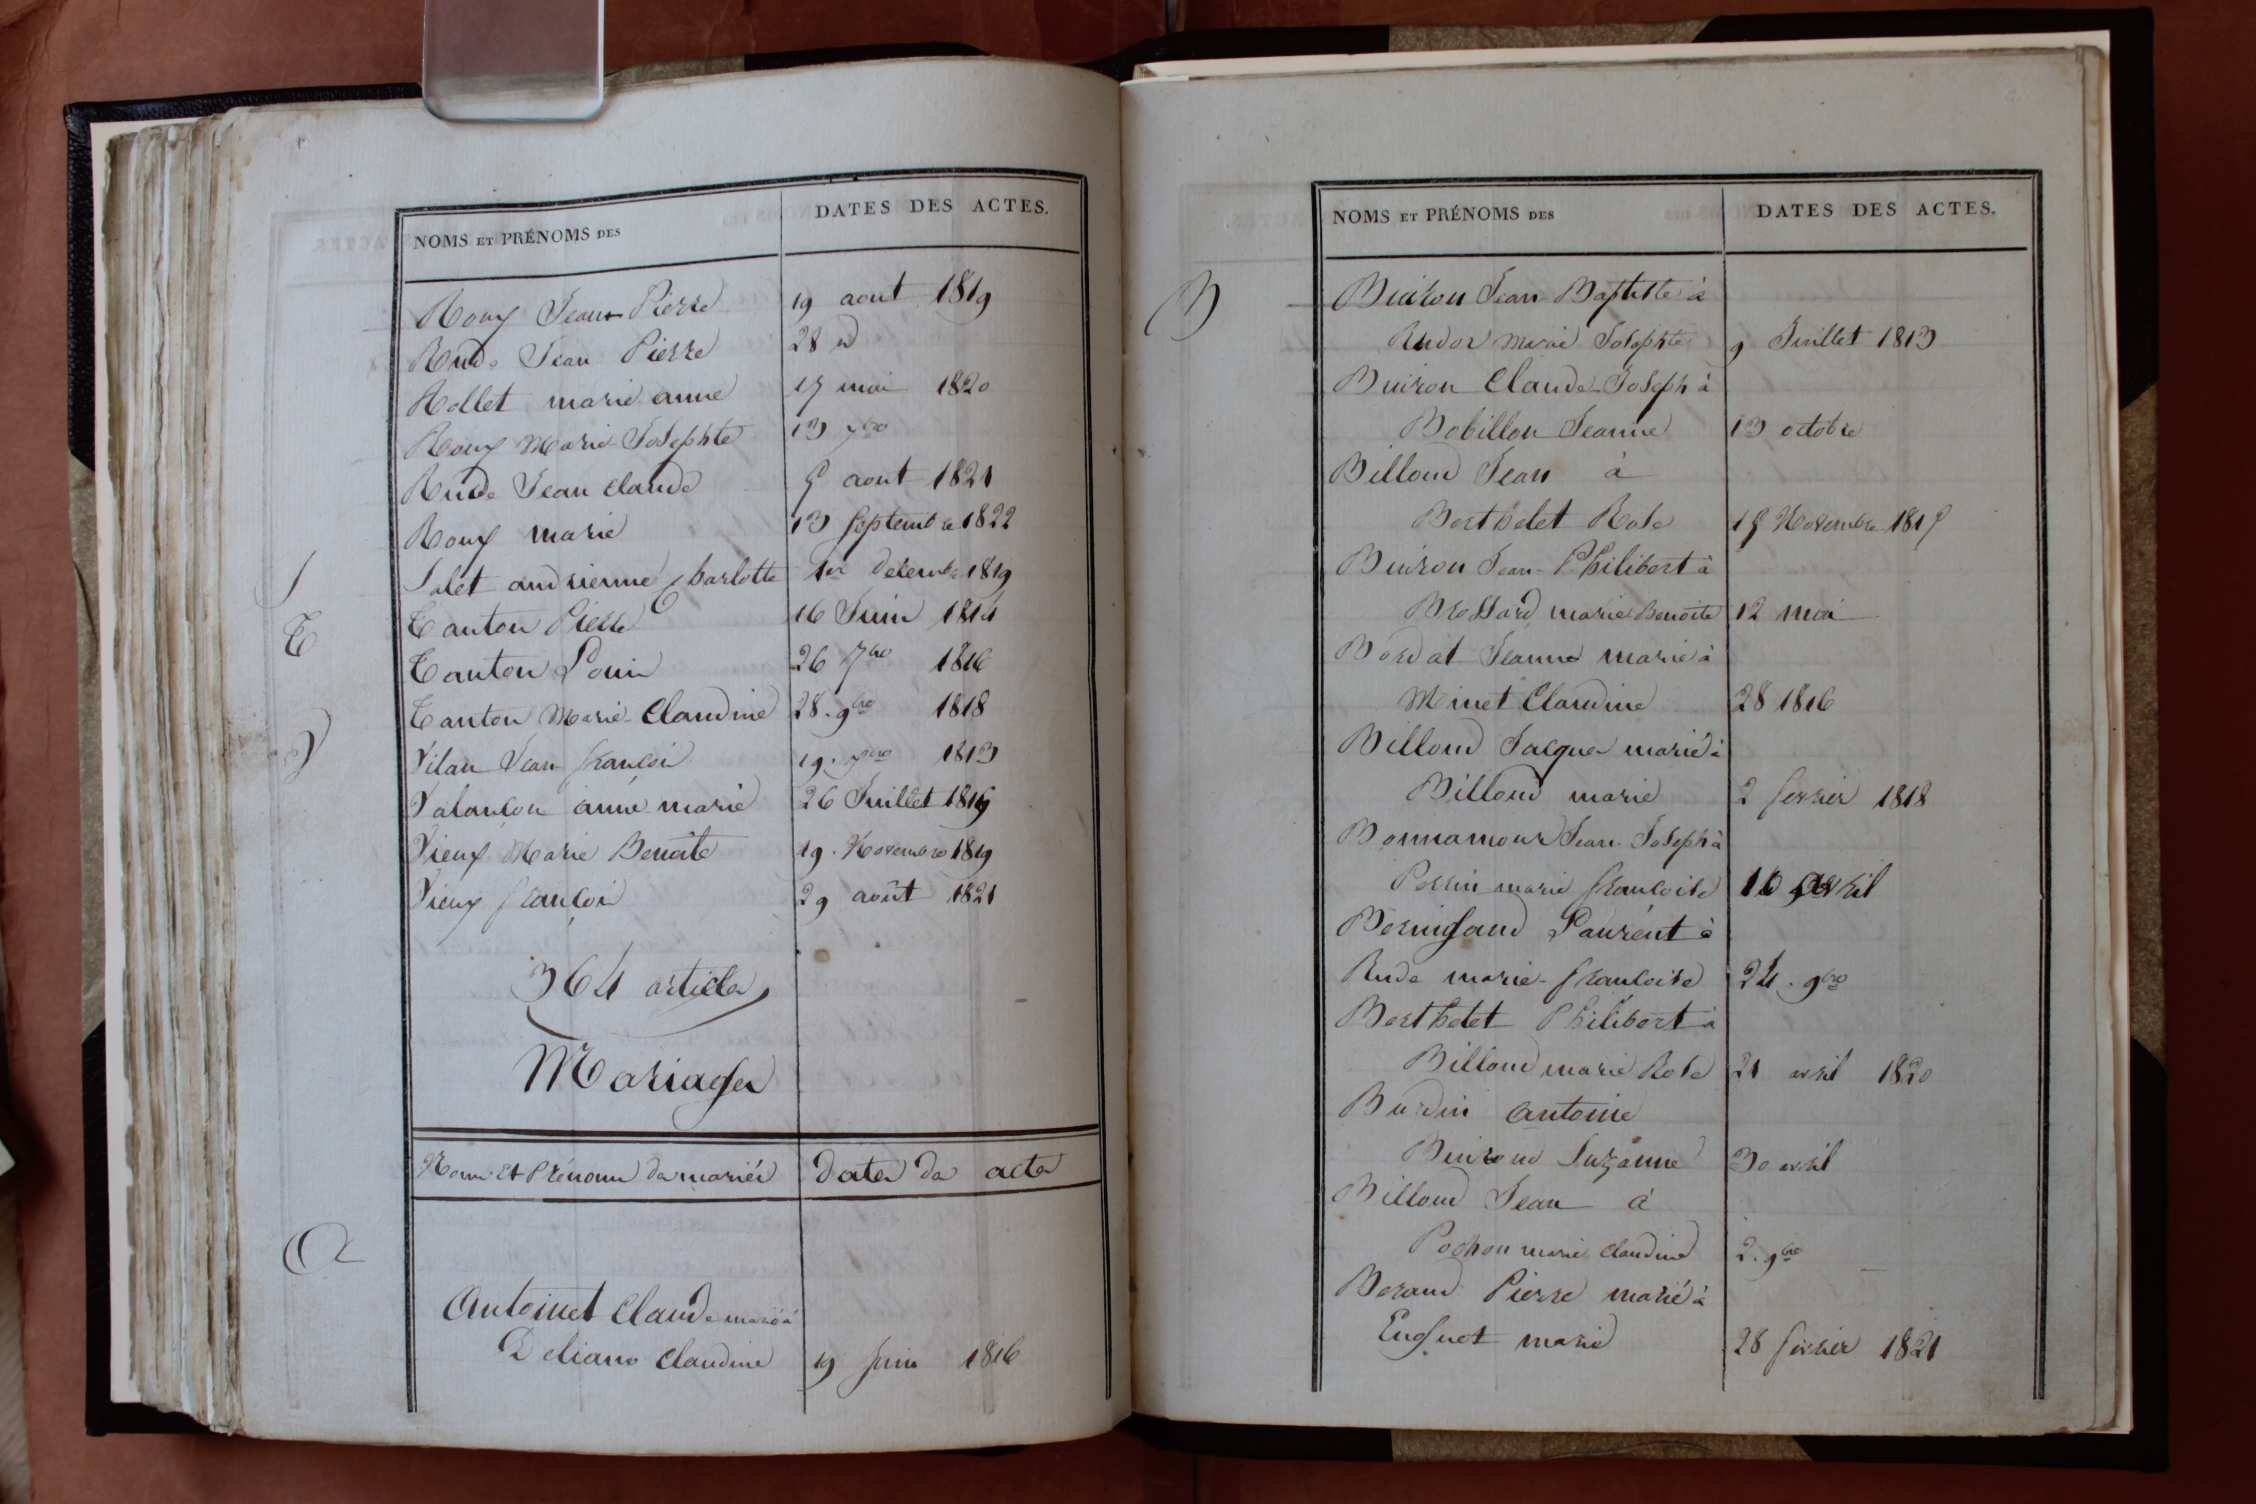 NOMS ET PRÉNOMS DES DATES DES ACTES.
Roux Jean Pierre 19 aout 1819
Rude Jean Pierre 28 id
Rollet marie anne 17 mai 1820
Roux Marie Josephte 13 7bre
Rude Jean claude 5 aout 1821
Roux marie 13 septembre 1822
S
Salet andrienne Charlotte 1er decembre 1819
T
Tanton Pierre 16 Juin 1814
Tanton Louis 26 7bre 1816
Tanton Marie Claudine 28. 9bre 1818
V
Vilan Jean francois 19. 1813
anne marie 26 Juillet 1819
Vieux Marie Benoite 19. Novembre 1819
Vieux francois 29 août 1821
364 articles
Mariages
Noms Et Prénoms des mariés Dates des actes
A
Antoinet Claude marié à
Claudine 19 Juin 1816
NOMS ET PRÉNOMS DES DATES DES ACTES.
B
Buiron Jean Baptiste à
marie Josephte 9 Juillet 1813
Buiron Claude Joseph à
Bobillon Jeanne 13 octobre
Billoud Jean à
Berthelet Rose 15 Novembre 1815
Buiron Jean Philibert à
Brossard marie Benoite 12 mai
Bordat Jeanne marie à
Minet Claudine 28 1816
Billoud Jacques marié à
Billoud marie 2 fevrier 1818
Bonnamour Jean Joseph à
Perrin marie francoise 16 avril
Bernigaud Laurent à
Rude marie francoise 24. 9bre
Berthelet Philibert à
Billoud marie Rose 21 avril 1820
Burdin antoine
Suzanne 30 avril
Billoud Jean à
Pochon marie claudine 2. 9bre
Beraud Pierre marié à
marie 28 fevrier 1821